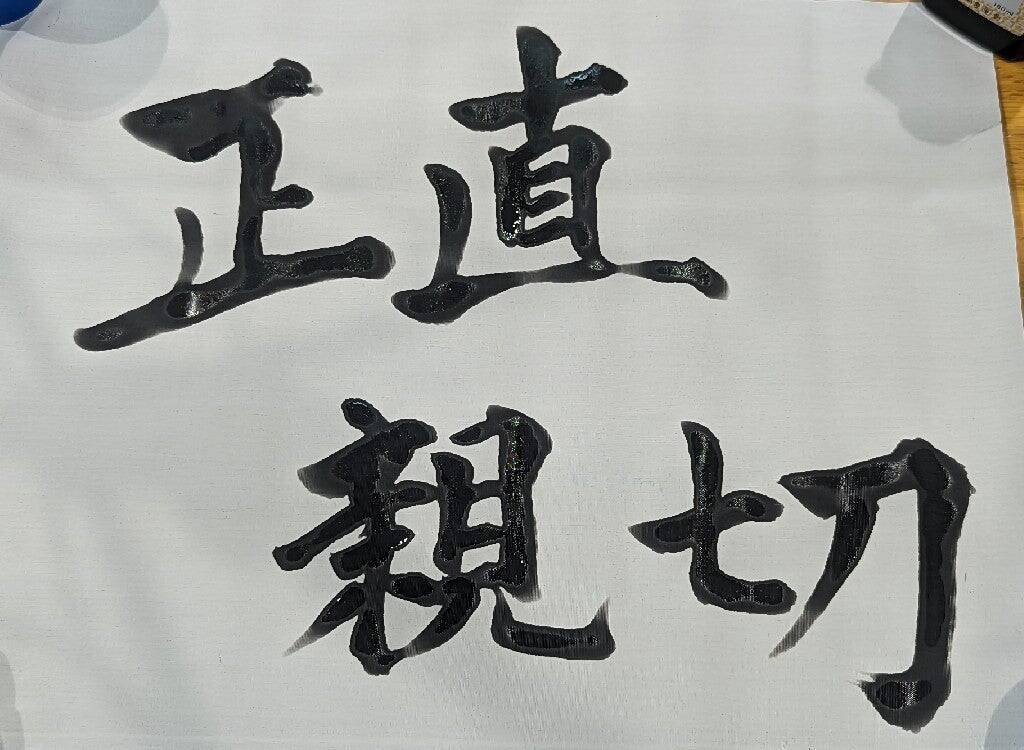 正直
親切